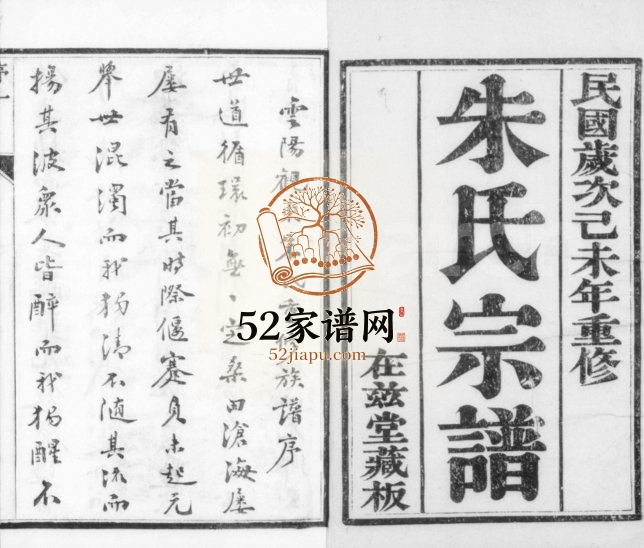 民國歲次己未年重修
朱氏宗譜
在玆堂藏板
雲陽觀 族譜序
世道循環初無一定桑田滄海屡
屡有之當其時際偃蹇貞未起元
舉世混濁而我獨清不隨其流而
揚其波衆人皆醉而我獨醒不
序一
52家谱网
52jiapu.com